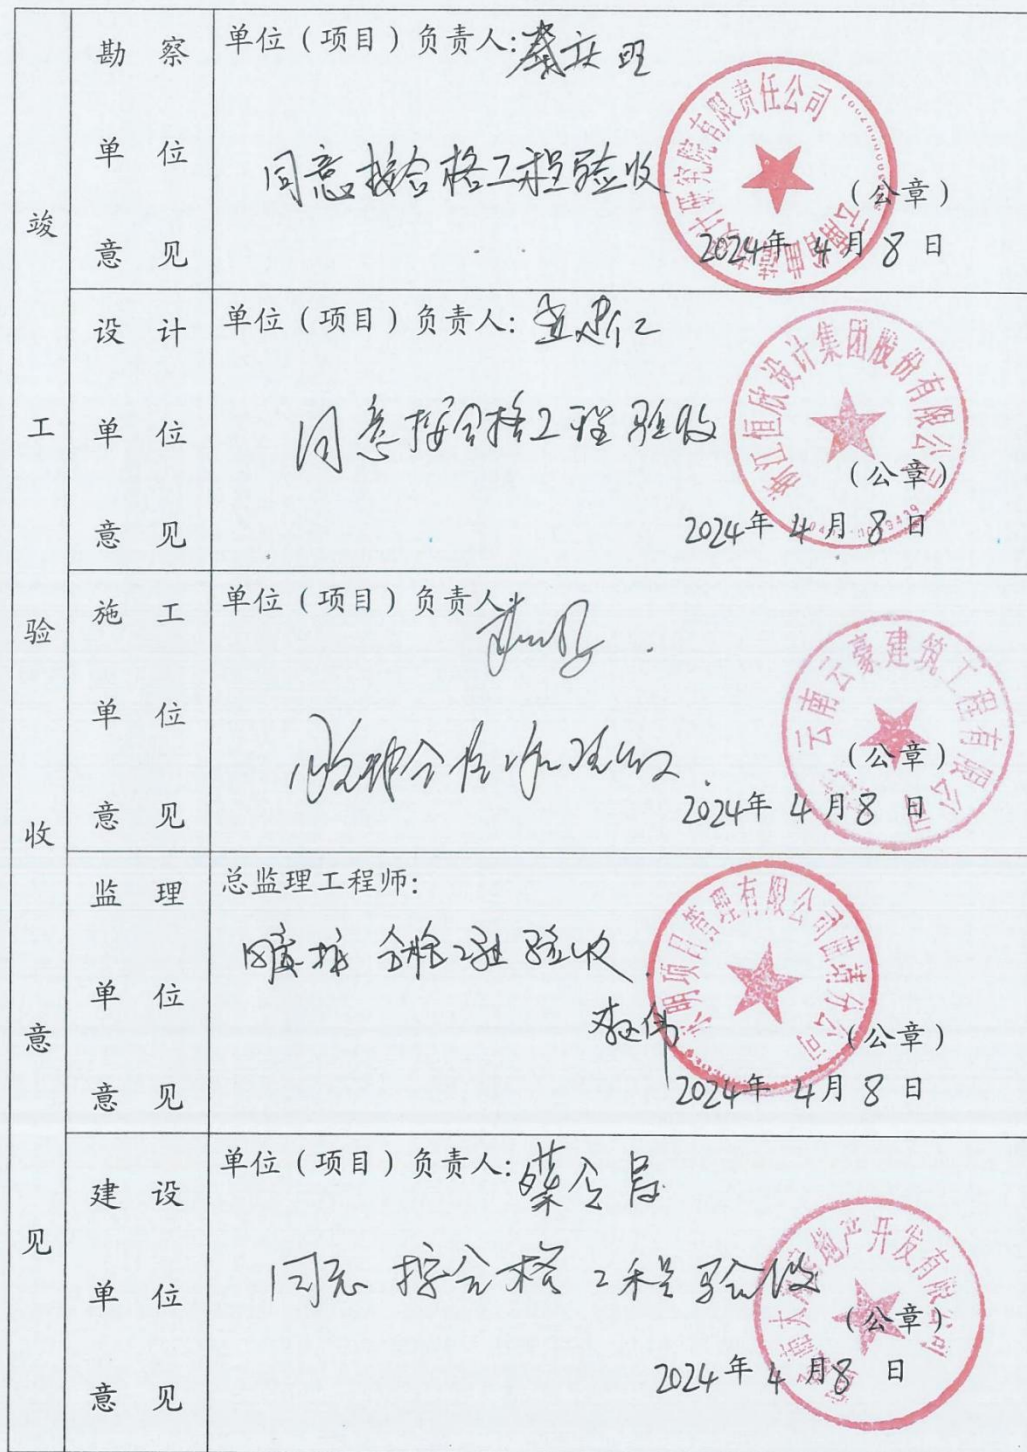 竣工验收意见
勘察单位意见
单位（项目）负责人:
同意按合格工程验收
设计研究院有限责任公司
云南省曲靖
（公章）
2024年 4月 8日
设计单位意见
单位（项目）负责人:
同意按合格工程验收
浙江恒欣设计集团股份有限公司
（公章）
2024年 4月 8日
施工单位意见
单位（项目）负责人:
云南云豪建筑工程有限公司
（公章）
2024年 4月 8日
监理单位意见
总监理工程师:
同意按合格工程验收
永明项目管理有限公司曲靖分公司
（公章）
2024年 4月 8日
建设单位意见
单位（项目）负责人:
同意按合格工程验收
地产开发有限公司
（公章）
2024年 4月 8日